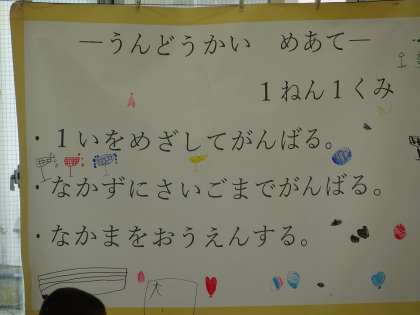 ―うんどうかい　めあて―
1ねん1くみ
・1いをめざしてがんばる。
・なかずにさいごまでがんばる。
・なかまをおうえんする。
大